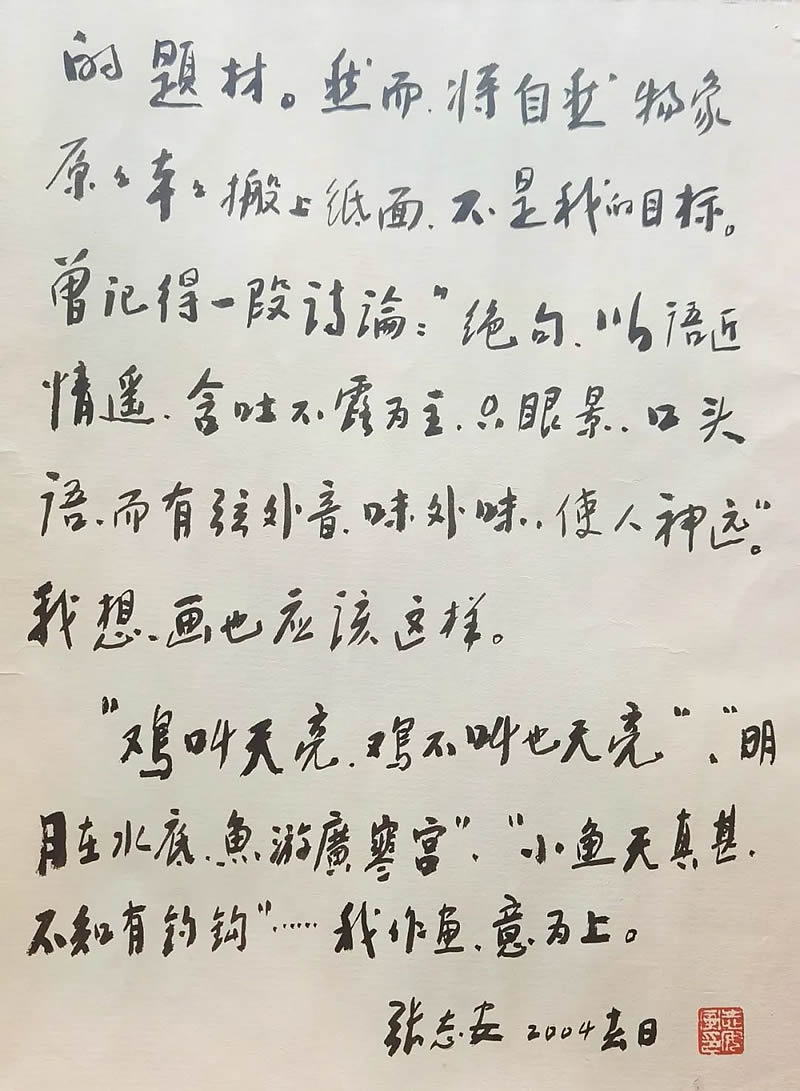 的題材。然而,将自然物象
原々本々搬上纸面,不是我的目标。
曾记得一段诗論:"绝句,以语近
情遥,含吐不露为主,只眼景,口头
语,而有弦外音,味外味,使人神远"。
我想,画也应该这样。
"鸡叫天亮,鸡不叫也天亮"、"明
月在水底,魚游廣寒宫"、"小鱼天真甚,
不知有钓钩"……我作画,意为上。
张志安 2004春日